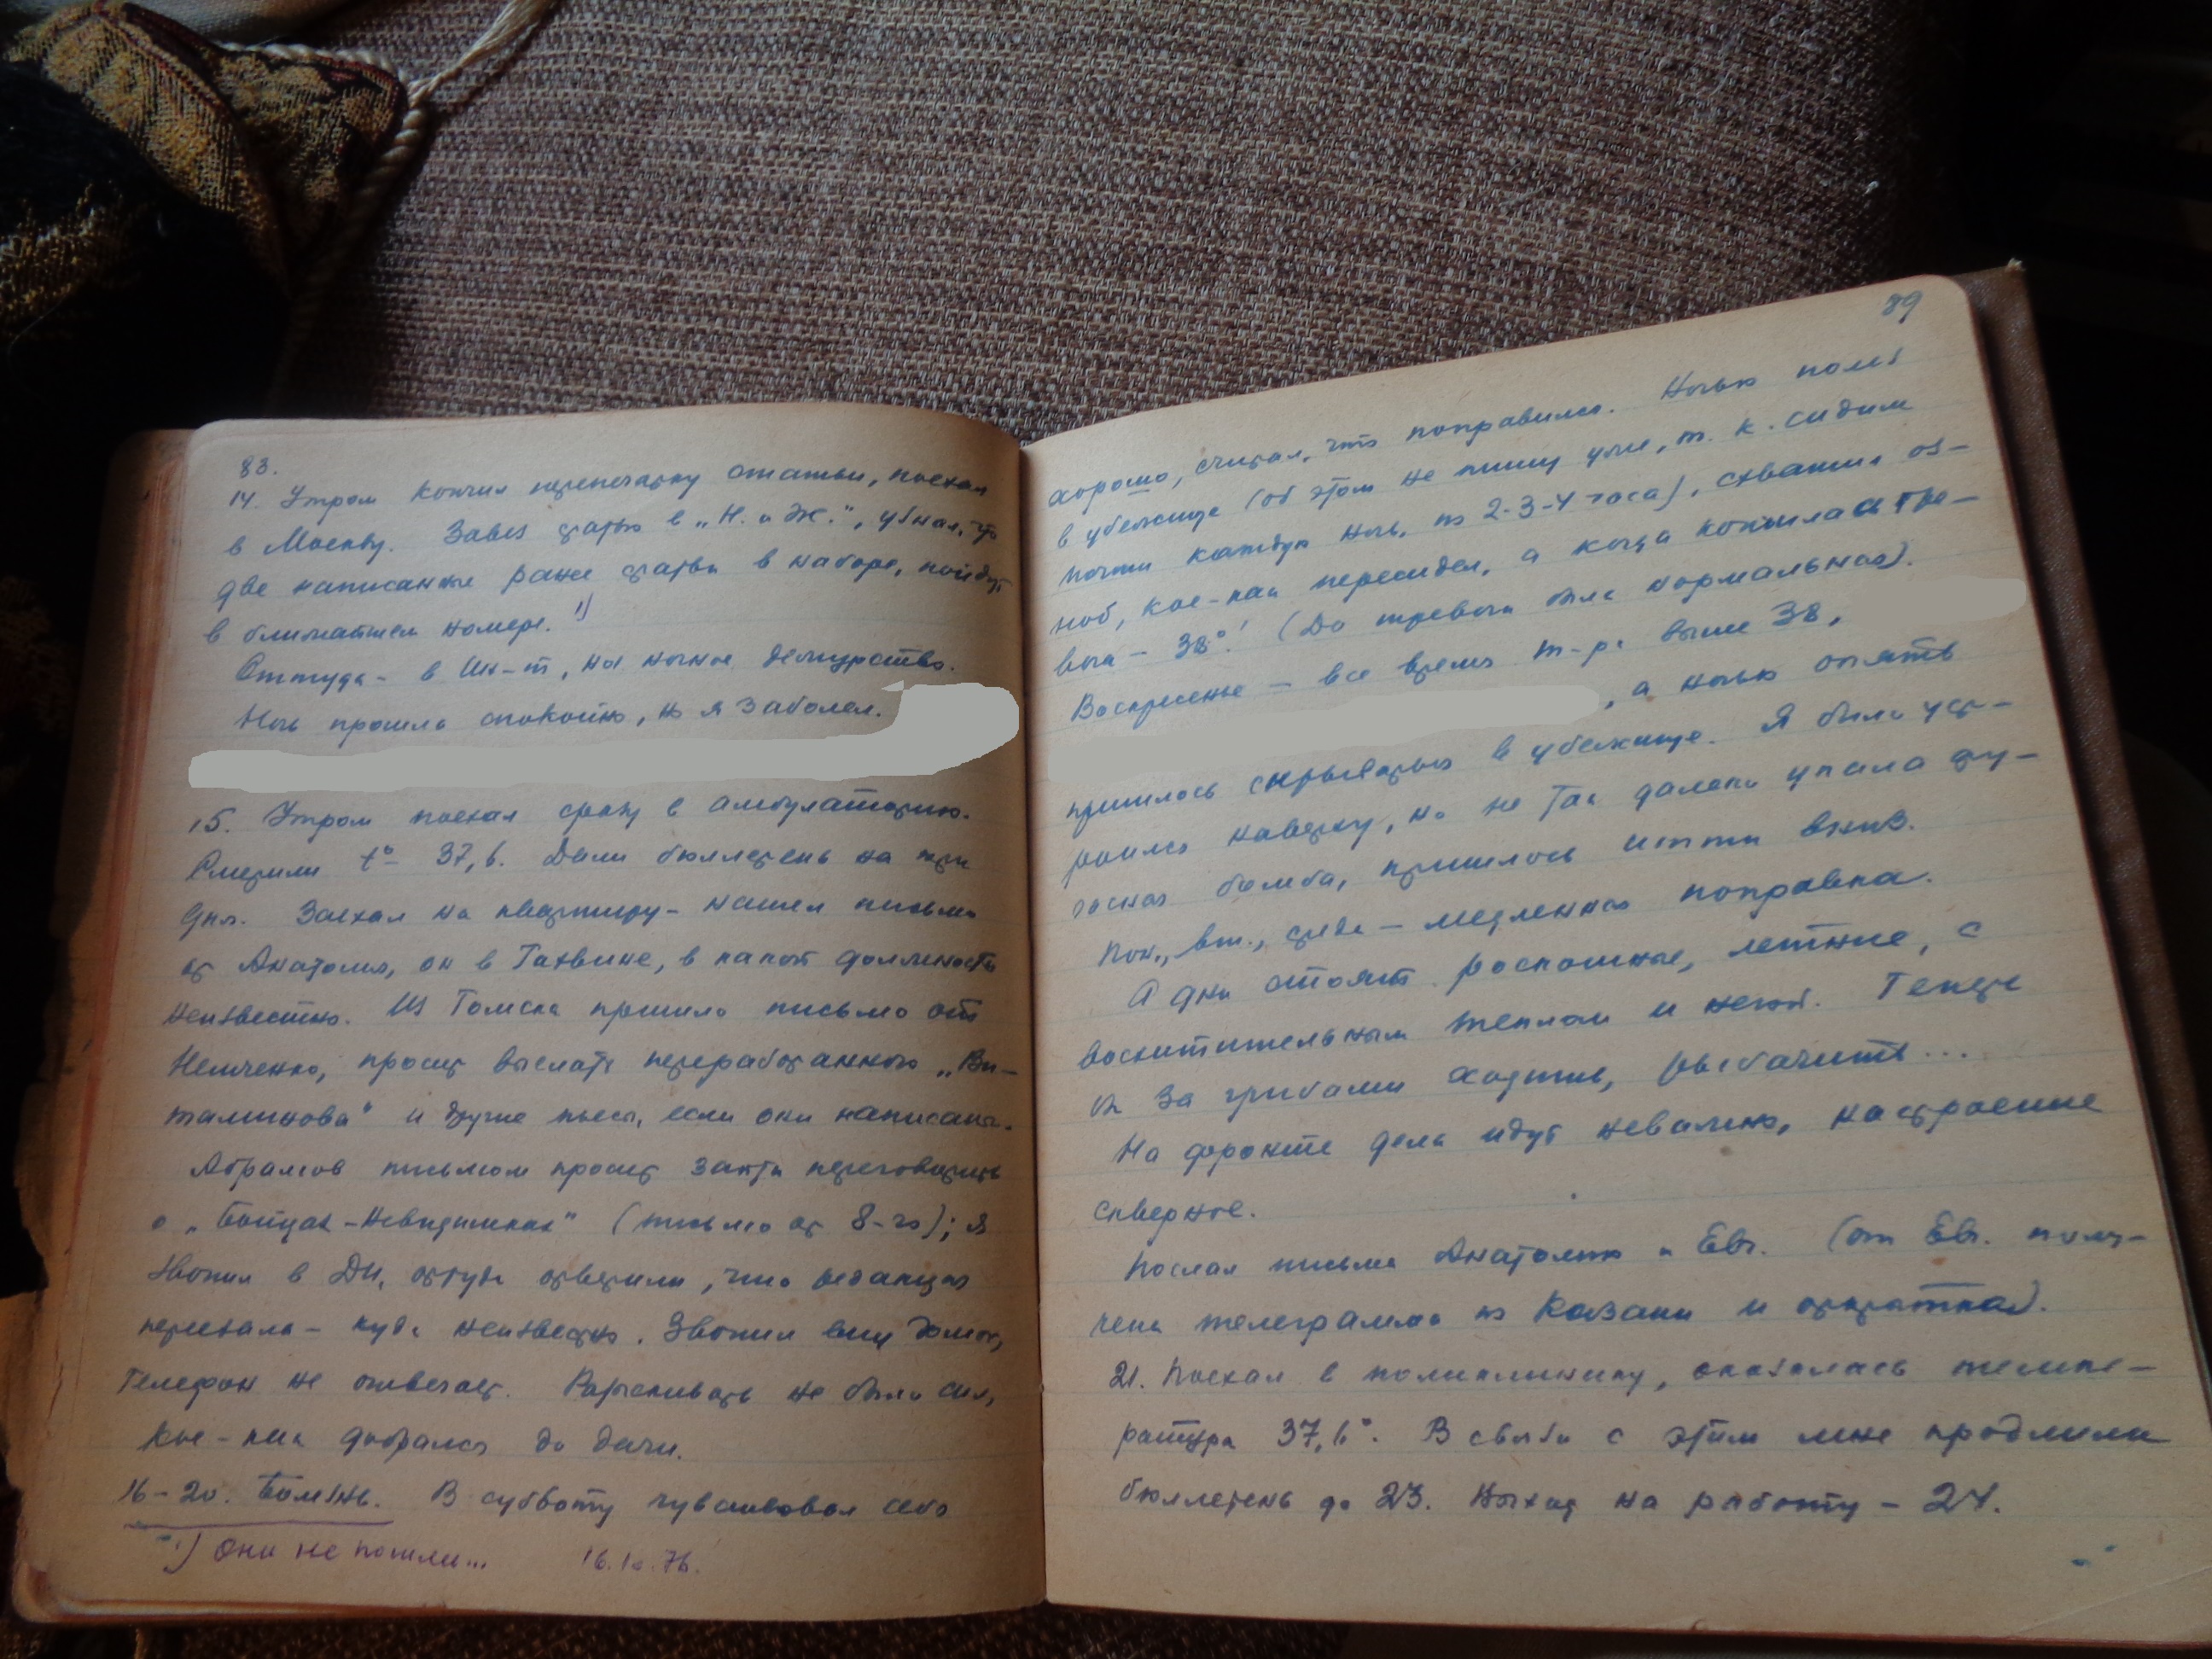 83.
14. Утром кончил перепечатку статьи, поехал
в Москву. Завез статью в „Н. и Ж.", узнал, что
две написанные ранее статьи в наборе, пойдут
в ближайшем номере. ¹)
Оттуда - в Ин-т, на ночное дежурство.
Ночь прошла спокойно, но я заболел.
15. Утром поехал сразу в амбулаторию.
Смерили t° - 37,6. Дали бюллетень на три
дня. Заехал на квартиру - нашел письмо
от Анатолия, он в Тихвине, в какой должности
неизвестно. Из Томска пришло письмо от
просит выслать переработанного „Ви-
талинова" и другие пьесы, если они написаны.
Абрамов письмом просит зайти переговорить
о „Бойцах-Невидимках" (письмо от 8-го); я
звонил в ДИ, оттуда ответили, что редакция
переехала - куда неизвестно. Звонил ему домой,
телефон не отвечает. Разыскивать не было сил,
кое-как добрался до дачи.
16-20. Болезнь. В субботу чувствовал себя
¹) Они не пошли... 16.10.76.
89
хорошо, считал, что поправился. Ночью полез
в убежище (об этом не пишу уже, т. к. сидим
почти каждую ночь, по 2-3-4 часа), схватил оз-
ноб, кое-как пересидел, а когда кончилась тре-
вога - 38°! (До тревоги была нормальная).
Воскресенье - все время т-ра выше 38,
, а ночью опять
пришлось скрываться в убежище. Я было уст-
роился наверху, но не так далеко упала фу-
гасная бомба, пришлось итти вниз.
Пон., вт., среда - медленная поправка.
А дни стоят роскошные, летние, с
восхитительным теплом и негой. Теперь
бы за грибами ходить, рыбачить...
На фронте дела идут неважно, настроение
скверное.
Послал письма Анатолию и Евг. (от Евг. полу-
чена телеграмма из Казани и открытка).
21. Поехал в поликлинику, оказалась темпе-
ратура 37,6°. В связи с этим мне продлили
бюллетень до 23. Выход на работу - 24.